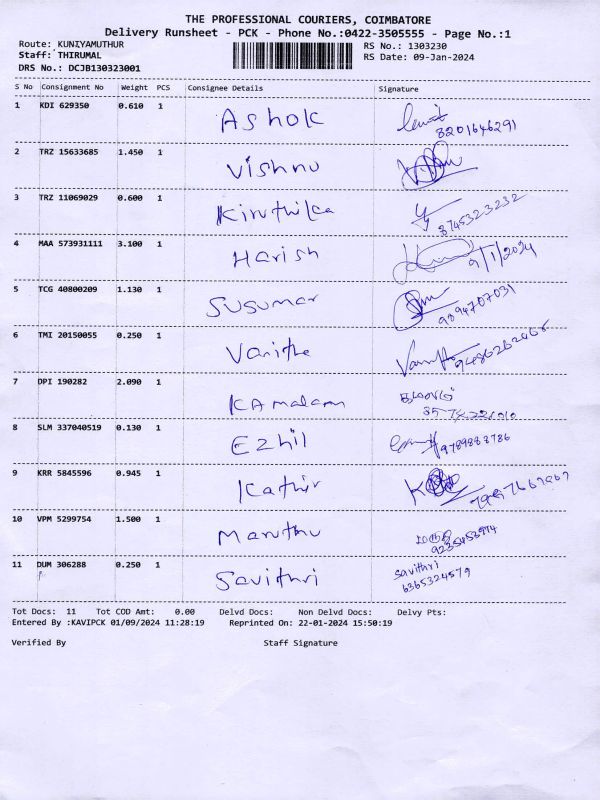 THE PROFESSIONAL COURIERS, COIMBATORE
Delivery Runsheet - PCK - Phone No.:0422-3505555 - Page No.:1
Route: KUNIYAMUTHUR RS No.: 1303230
Staff: THIRUMAL RS Date: 09-Jan-2024
DRS No.: DCJB130323001
S No Consignment No Weight PCS Consignee Details Signature
1 KDI 629350 0.610 1 Ashok
8201646291
2 TRZ 15633685 1.450 1 Vishnu
3 TRZ 11069029 0.600 1 Kiruthika
8745323232
4 MAA 573931111 3.100 1 Harish 9/1/2024
5 TCG 40800209 1.130 1 Susumar
9894707031
6 TMI 20150055 0.250 1 Vanitha
7 DPI 190282 2.090 1 KAmalam
8 SLM 337040519 0.130 1 Ezhil 9789883786
9 KRR 5845596 0.945 1 Kathir
10 VPM 5299754 1.500 1 Maruthu
11 DUM 306288 0.250 1 Savithri Savithri
6365324579
Tot Docs: 11 Tot COD Amt: 0.00 Delvd Docs: Non Delvd Docs: Delvy Pts:
Entered By :KAVIPCK 01/09/2024 11:28:19 Reprinted On: 22-01-2024 15:50:19
Verified By Staff Signature